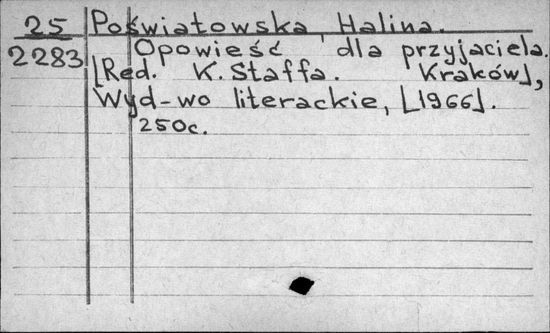 25 Poświatowska Halina.
2283 Opowieść dla przyjaciela.
[Red. K. Staffa. Kraków],
Wyd-wo literackie, [1966].
250c.